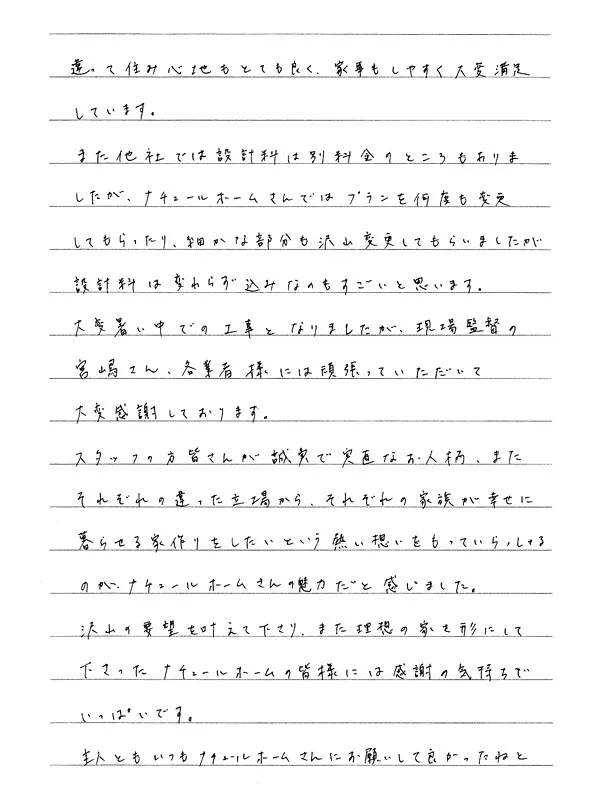 違って住み心地もとても良く、家事もしやすく大変満足
しています。
また他社では設計料は別料金のところもありま
したが、ナチュールホームさんではプランを何度も変更
してもらったり、細かな部分も沢山変更してもらいましたが
設計料は変わらず込みなのもすごいと思います。
大変暑い中での工事となりましたが、現場監督の
宮嶋さん、各業者様には頑張っていただいて
大変感謝しております。
スタッフの方皆さんが誠実で実直なお人柄、また
それぞれの違った立場から、それぞれの家族が幸せに
暮らせる家作りをしたいという熱い想いをもっていらっしゃる
のが、ナチュールホームさんの魅力だと感じました。
沢山の要望を叶えて下さり、また理想の家を形にして
下さったナチュールホームの皆様には感謝の気持ちで
いっぱいです。
主人ともいつもナチュールホームさんにお願いして良かったねと